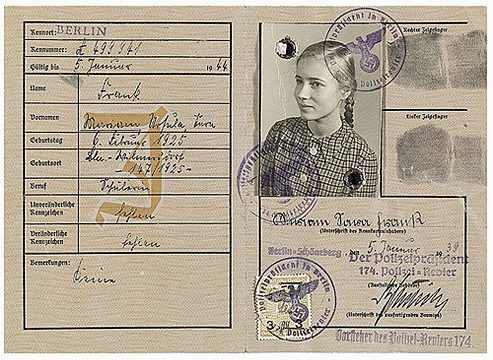 Kennort: BERLIN
Kennummer: A 499941
Gültig bis 5. Januar 1944
Name Frank
Vornamen Mariam, Ursula, Sara
Geburtstag 9. Februar 1925
Geburtsort Bln-Wilmersdorf
-147/1925-
Beruf Schülerin
Unveränderliche
Kennzeichen fehlen
Veränderliche
Kennzeichen fehlen
Bemerkungen: Keine
J
Polizeipräsident in Berlin
Rechter Zeigefinger
Linker Zeigefinger
Mariam Sara Frank
(Unterschrift des Kennkarteninhabers)
Berlin-Schöneberg, den 5. Januar 1939
Der Polizeipräsident
174. Polizei-Revier
(Ausstellende Behörde)
(Unterschrift des ausfertigenden Beamten)
Vorsteher des Polizei-Reviers 174.
Polizeipräsident in Berlin
3